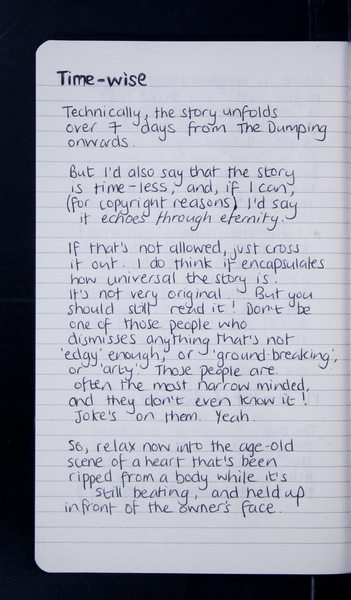 Time-wise
Technically, the story unfolds
over 7 days from The Dumping
onwards.
But I'd also say that the story
is time-less, and, if I can,
(for copyright reasons) I'd say
it echoes through eternity.
If that's not allowed, just cross
it out. I do think it encapsulates
how universal the story is.
It's not very original. But you
should still read it! Don't be
one of those people who
dismisses anything that's not
'edgy' enough, or 'ground-breaking',
or 'arty'. Those people are
often the most narrow minded,
and they don't even know it!
Joke's on them. Yeah.
So, relax now into the age-old
scene of a heart that's been
ripped from a body while it's
still beating, and held up
infront of the owner's face.